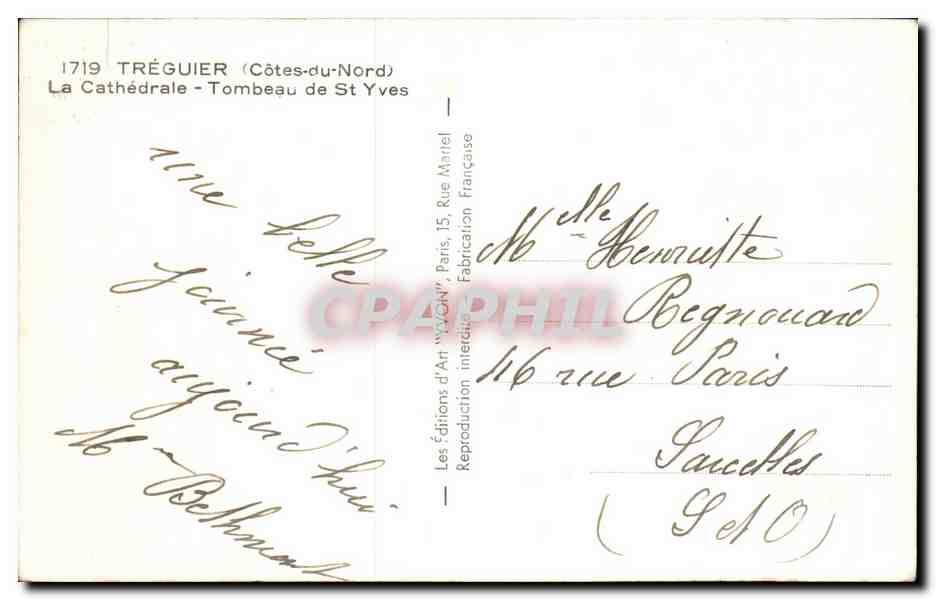 1719 TRÉGUIER (Côtes-du-Nord)
La Cathédrale - Tombeau de St Yves
une belle
journée
aujourd'hui
Mm Bethmont
Les Éditions d'Art "YVON", Paris, 15, Rue Martel
Reproduction interdite Fabrication Française
CPAPHIL
Melle Henriette
Regnouard
46 rue Paris
Sarcelles
(S et O)